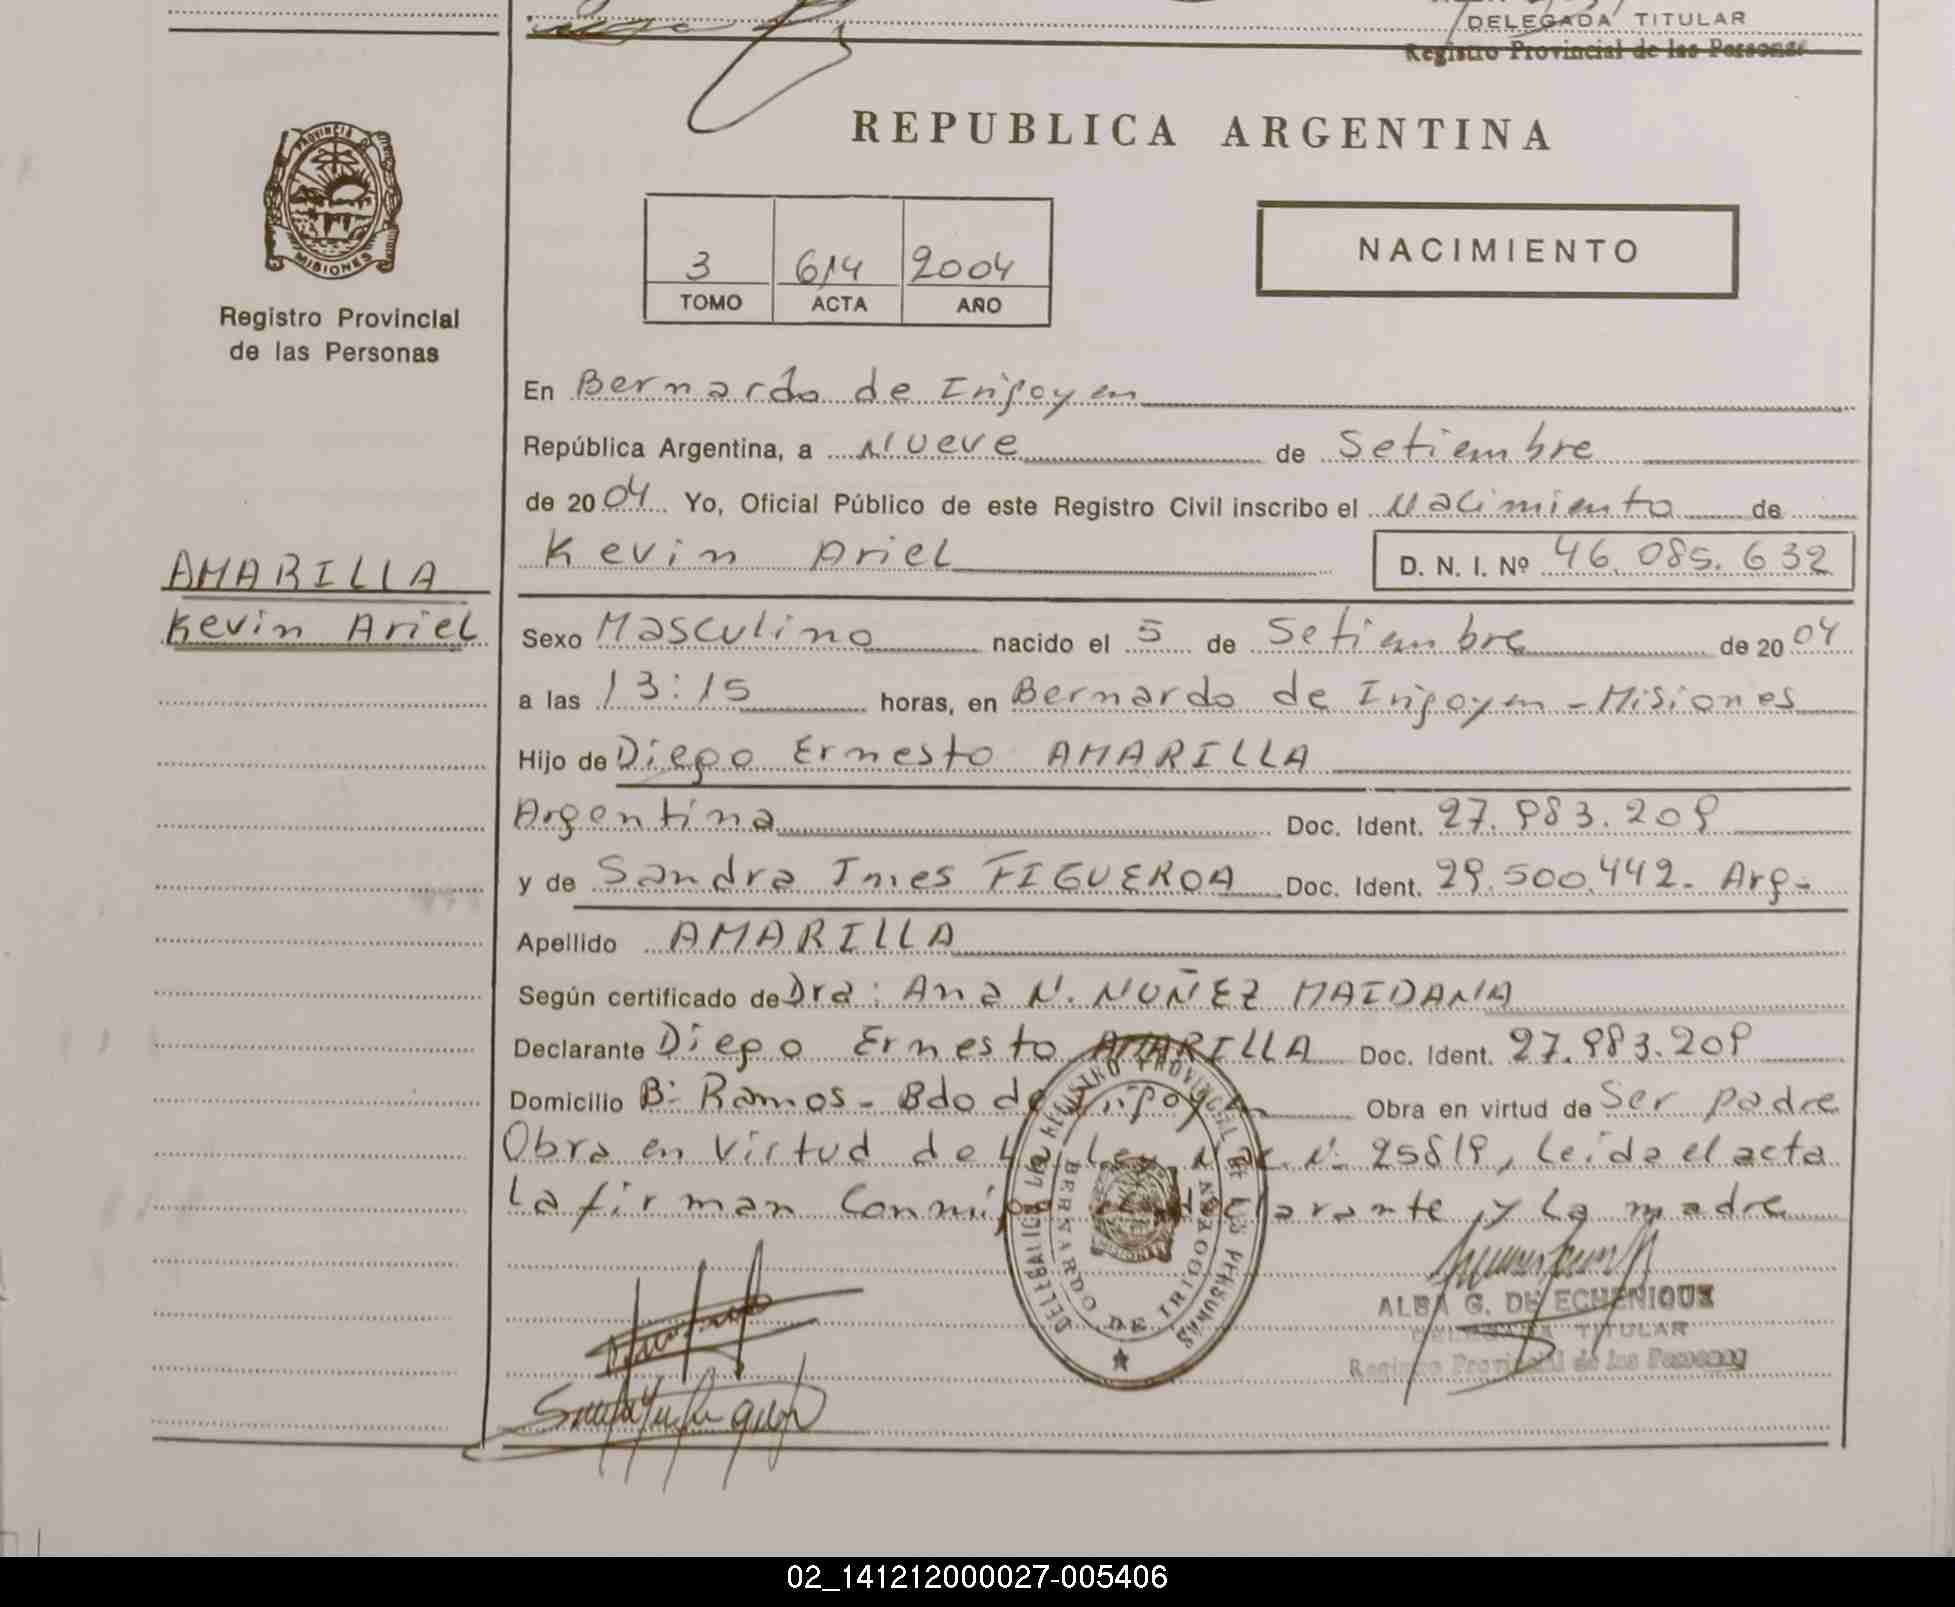 DELEGADA TITULAR
Registro Provincial de las Personas
REPUBLICA ARGENTINA
PROVINCIA DE
MISIONES
Registro Provincial
de las Personas
3 614 2004
TOMO ACTA AÑO
NACIMIENTO
En Bernardo de Irigoyen
República Argentina, a Nueve de Setiembre
de 2004 Yo, Oficial Público de este Registro Civil inscribo el Nacimiento de
Kevin Ariel D. N. I. Nº 46.085.632
AMARILLA
Kevin Ariel
Sexo Masculino nacido el 5 de Setiembre de 2004
a las 13:15 horas, en Bernardo de Irigoyen - Misiones
Hijo de Diego Ernesto AMARILLA
Argentina Doc. Ident. 27.983.209
y de Sandra Ines FIGUEROA Doc. Ident. 29.500.442- Arg-
Apellido AMARILLA
Según certificado de Dra: Ana N. NUÑEZ MAIDANA
Declarante Diego Ernesto AMARILLA Doc. Ident. 27.983.209
Domicilio B: Ramos - Bdo de Irigoyen Obra en virtud de Ser padre
Obra en virtud de La Ley Nac. N: 25819, leida el acta
La firman Conmigo el declarante y La madre
DELEGACION DEL REGISTRO PROVINCIAL DE LAS PERSONAS
BERNARDO DE IRIGOYEN
MISIONES
ALBA G. DE ECHENIQUE
DELEGADA TITULAR
Registro Provincial de las Personas
02_141212000027-005406